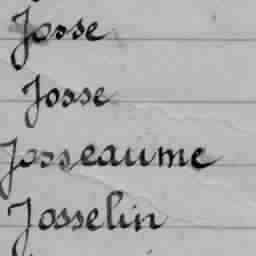 Josse
Josse
Josseaume
Josselin